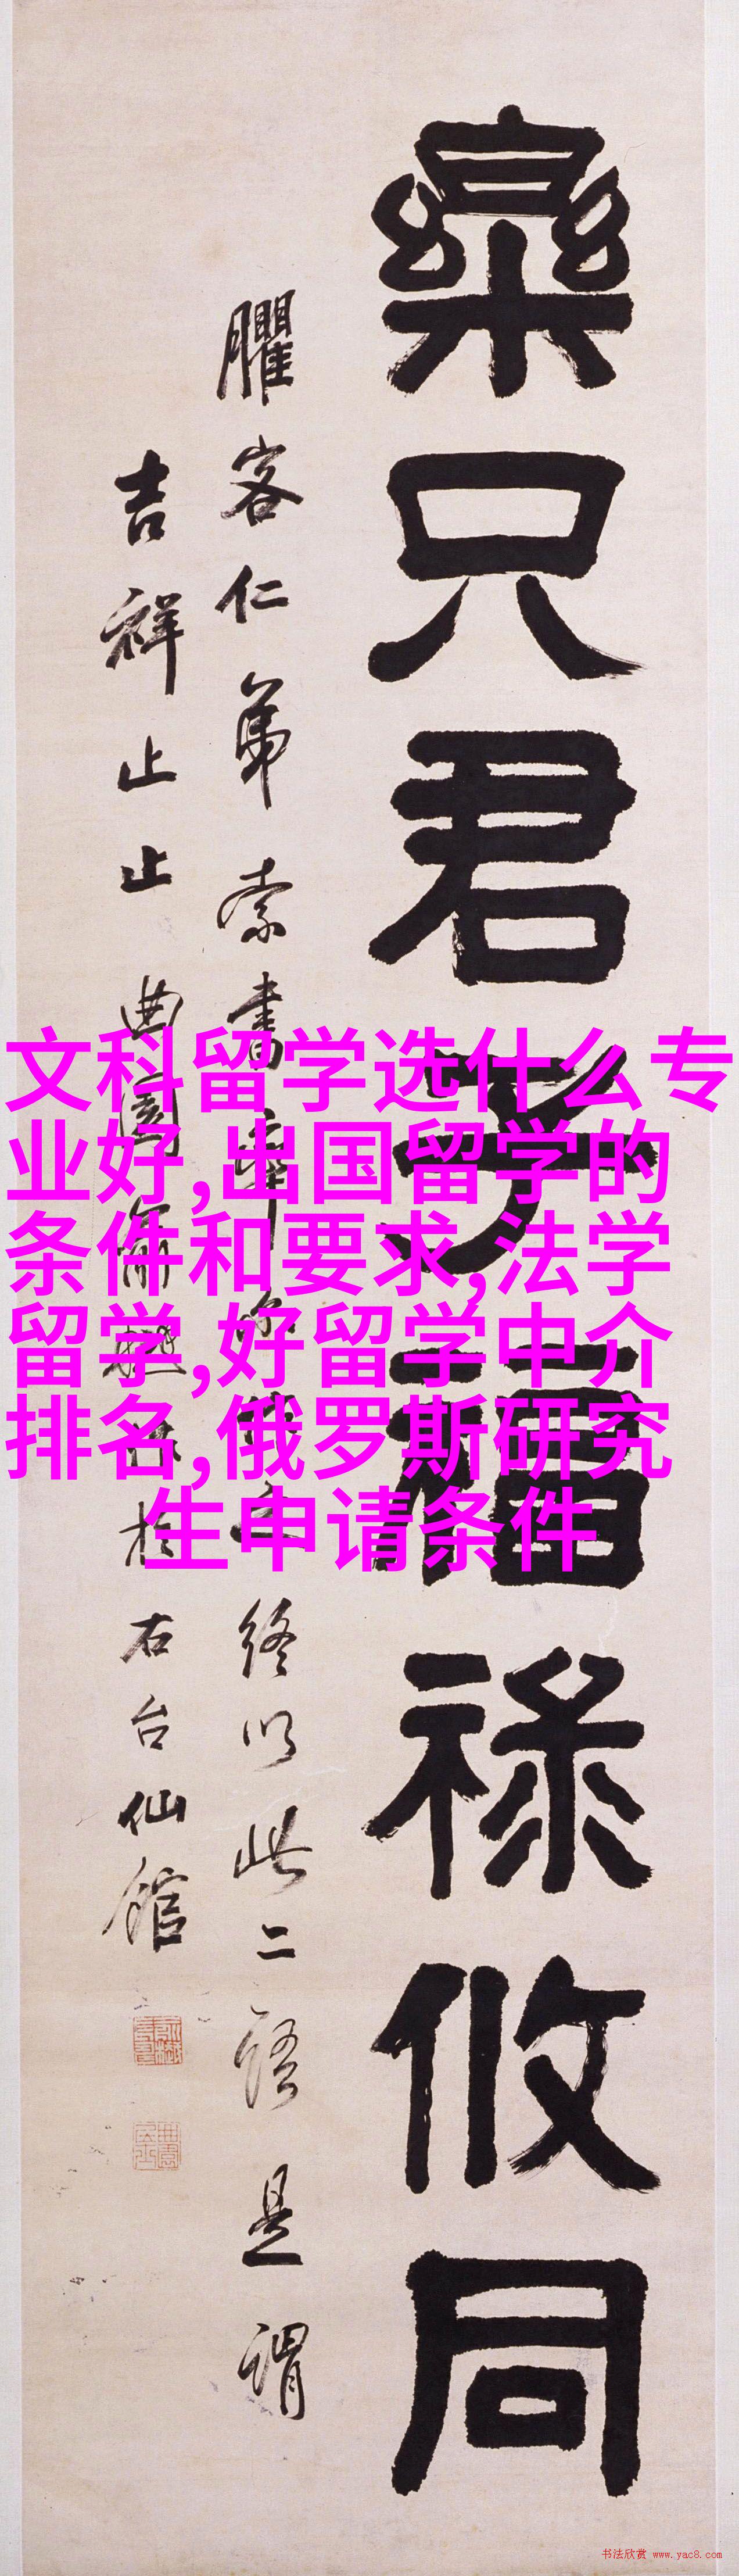 樂只君子福祿攸同
臞客仁弟索書率
終以此二語是謂
吉祥止止曲園
於右台仙館
文科留学选什么专
业好,出国留学的
条件和要求,法学
留学,好留学中介
排名,俄罗斯研究
生申请条件
书法欣赏 www.yac8.com